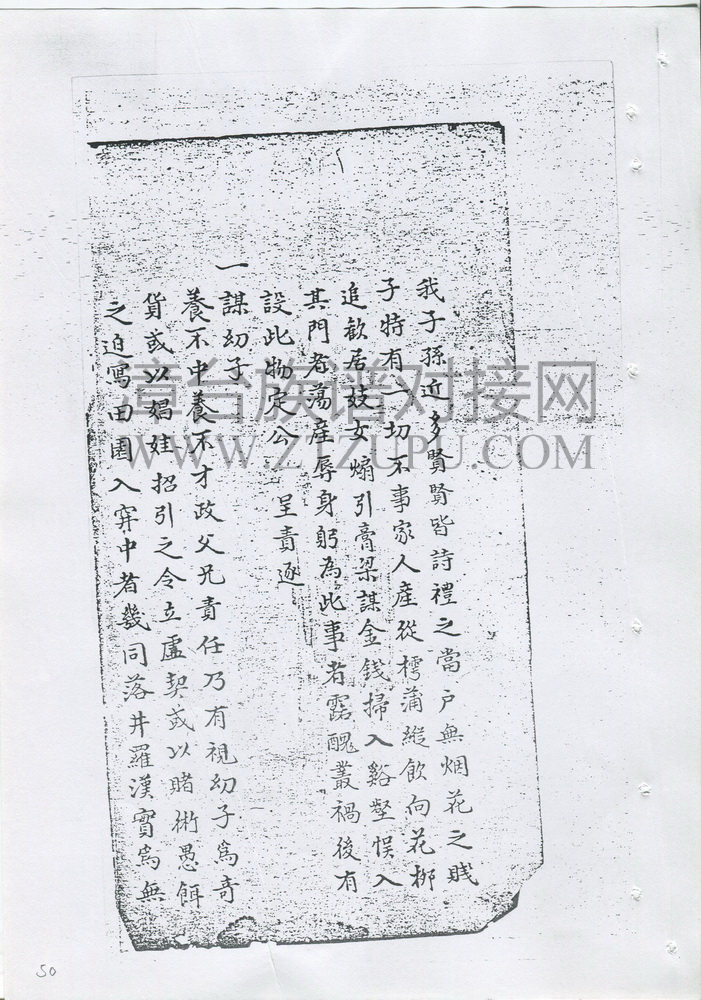 我子孫近多賢賢皆詩禮之當戶無烟花之賤
子特有一切不事家人產從樗蒲縱飲向花柳
追歡居妓女煽引膏粱謀金錢掃入谿壑悮入
其門者蕩產辱身躬為此事者露醜叢禍後有
設此物定公呈責逐
一謀幼子
養不中養不才政父兄責任乃有視幼子為奇
貨或以娼娃招引之令立虛契或以賭術愚餌
之迫寫田園入穽中者幾同落井羅漢實為無
漳台族谱对接网
WWW.ZTZUPU.COM
50